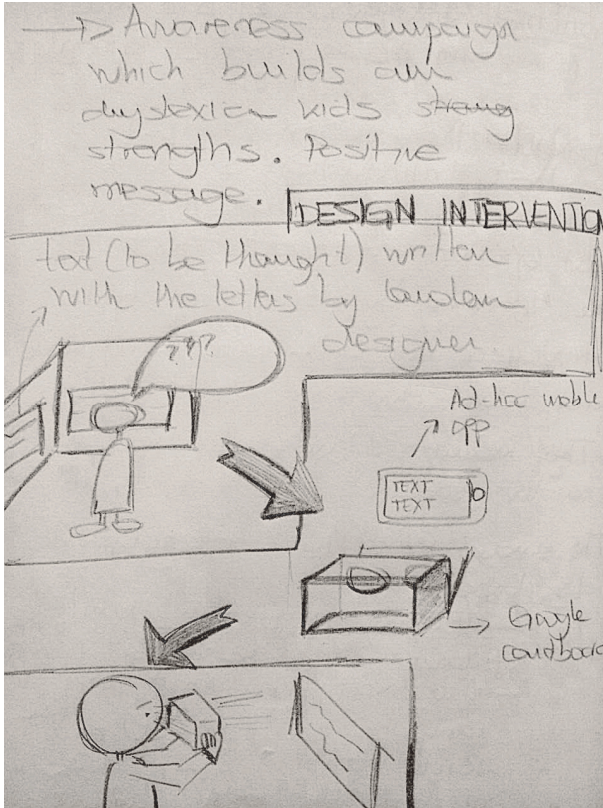 Awareness campaign
which builds on
dyslexic kids strong
strengths. Positive
message.
DESIGN INTERVENTION
text (to be thought) written
with the letters by london
designer
???
Ad-hoc mobile
app
TEXT
TEXT
Google
cardboard